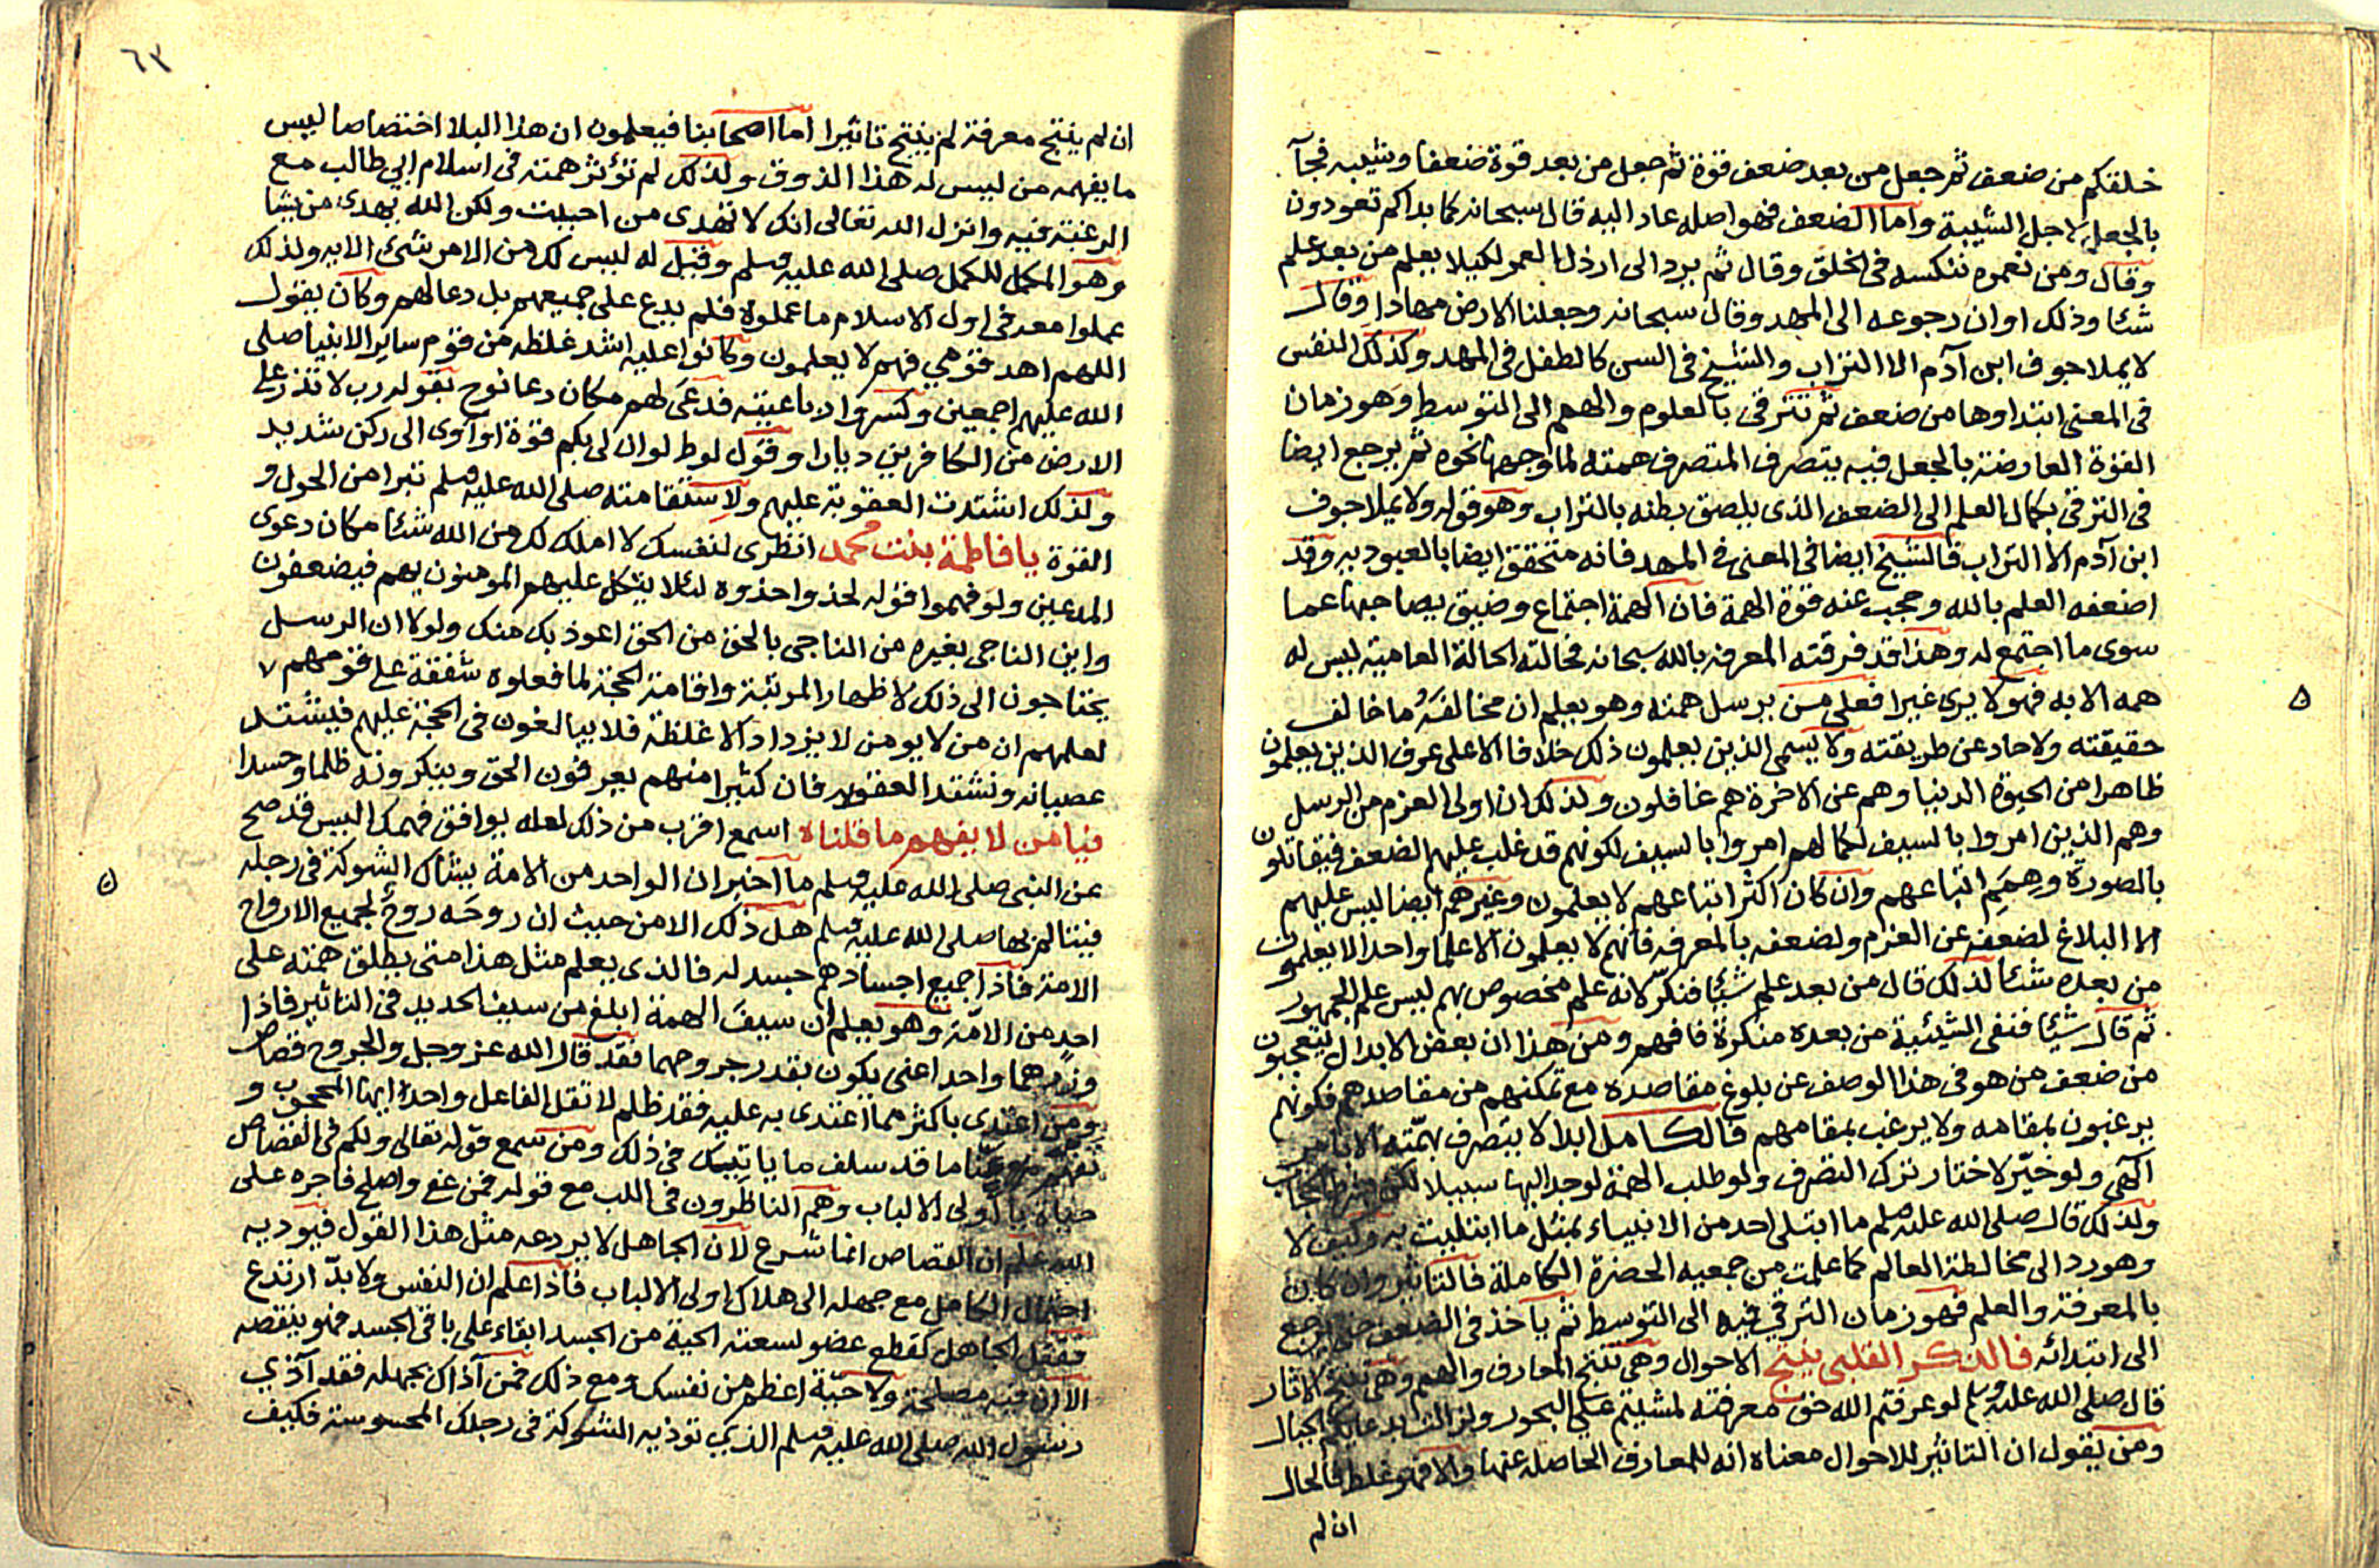 خلقكم من ضعف ثم جعل من بعد ضعف قوة ثم جعل من بعد قوة ضعفا وشيبه فجآ
بالجعل لاجل الشيبة واما الضعف فهو اصله عاد اليه قال سبحانه كما بداكم تعودون
وقال ومن نعمره ننكسه فى الخلق وقال ثم يرد الى ارذل العمر لكيلا يعلم من بعد علم
شئا وذلك اوان رجوعه الى المهد وقال سبحانه وجعلنا الارض مهادا وقال
لا يملا جوف ابن آدم الا التراب والشيخ فى السن كالطفل فى المهد وكذلك النفس
فى المعنى ابتداوها من ضعف ثم تترقى بالعلوم والهمم الى المتوسط وهو زمان
القوة العارضة بالجعل فيه يتصرف المتصرف همته لما وجهها نحوه ثم يرجع ايضا
فى الترقى بكمال العلم الى الضعف الذى يلصق بطنه بالتراب وهو قوله ولا يملا جوف
ابن آدم الا التراب فالشيخ ايضا فى المعنى فى المهد فانه متحقق ايضا بالعبوديه وقد
اضعفه العلم بالله وحجب عنه قوة الهمة فان الهمة اجتماع وضيق بصاحبها عما
سوى ما اجتمع له وهذا قد فرقته المعرفه بالله سبحانه فحالته الحالة العامية ليس له
همه الا به فهو لا يرى غيرا فعلى من يرسل همته وهو يعلم ان مخالفَهُ ما خالف
حقيقته ولا حاد عن طريقته ولا يسمى الذين يعلمون ذلك خلافا الا على عرف الذين يعلمون
ظاهرا من الحيوة الدنيا وهم عن الاخرة هم غافلون ولذلك ان اولى العزم من الرسل
وهم الذين امروا بالسيف لكمالهم امروا بالسيف لكونهم قد غلب عليهم الضعف فيقاتلون
بالصورة وهِمَمِ اتباعهم وان كان اكثر اتباعهم لا يعلمون وغيرهم ايضا ليس عليهم
الا البلاغ لضعفه عن العزم ولضعفه بالمعرفه فانهم لا يعلمون الا علما واحدا لا يعلمون
من بعده شئا لذلك قال من بعد علم شيئا فنكّر لانه علم مخصوص بهم ليس علم الجمهور
ثم قال شيئا فنفى الشيئية من بعده منكرة فافهم ومن هذا ان بعض الابدال يتعجبون
من ضعف من هو فى هذا الوصف عن بلوغ مقاصده مع تمكنهم من مقاصدهم فكونهم
يرغبون بمقامه ولا يرغب بمقامهم فالكامل ابدا لا يتصرف بهمّته الا بامر
آلهى ولو خيّر لاختار ترك التصرف ولو طلب الهمة لوجد اليها سبيلا
ولذلك قال صلى الله عليه وسلم ما ابتلى احد من الانبياء بمثل ما ابتليت به وكيف لا
وهو رد الى مخالطة العالم كما علمت من جمعيه الحضرة الكاملة فالتاثير وان كان
بالمعرفة والعلم فهو زمان الترقي فيه الى التوسط ثم ياخذ فى الضعف حتى يرجع
الى ابتدائه فالذكر القلبى ينتج الاحوال وهى تنتج المعارف والهمم وهى تنتج الاثار
قال صلى الله عليه وسلم لو عرفتم الله حق معرفته لمشيتم على البحور ولزالت بدعايكم الجبال
ومن يقول ان التاثير للاحوال معناه انه للمعارف الحاصله عنها والا فهو غلط فالحال
ان لم
٦٣
ان لم ينتج معرفة لم ينتج تاثيرا اما اصحابنا فيعلمون ان هذا البلا اختصاصا ليس
ما يفهمه من ليس له هذا الذوق ولذلك لم تؤثر همته فى اسلام ابى طالب مع
الرغبة فيه وانزل الله تعالى انك لا تهدى من احببت ولكن الله يهدى من يشا
وهو المكمل للكمل صلى الله عليه وسلم وقيل له ليس لك من الامر شئ الايه ولذلك
عملوا معه فى اول الاسلام ما عملوه فلم يدع على جميعهم بل دعا لهم وكان يقول
اللهم اهد قومي فهم لا يعلمون وكانوا عليه اشد غلظه من قوم ساير الانبيا صلى
الله عليهم اجمعين وكسروا رباعيته فدعى لهم مكان دعا نوح بقوله رب لا تذر على
الارض من الكافرين ديارا وقول لوط لو ان لى بكم قوة او آوى الى ركن شديد
ولذلك اشتدت العقوبة عليهم ولاستقامته صلى الله عليه وسلم تبرا من الحول و
القوة يا فاطمة بنت محمد انظرى لنفسك لا املك لك من الله شئا مكان دعوى
المدعين ولو فهموا قوله لخذوا حذوه لئلا يتكل عليهم المومنون بهم فيضعفون
واين الناجى بغيره من الناجى بالحق من الحق اعوذ بك منك ولولا ان الرسل
يحتاجون الى ذلك لاظهار المرتبة واقامة الحجة لما فعلوه شفقة على قومهم
لعلمهم ان من لا يومن لا يزداد الا غلظة فلا يبالغون فى الحجة عليهم فيشتد
عصيانه وتشتد العقوبه فان كثيرا منهم يعرفون الحق وينكرونه ظلما وحسدا
فيا من لا يفهم ما قلناه اسمع اقرب من ذلك لعله يوافق فهمك اليس قد صح
عن النبى صلى الله عليه وسلم ما اخبر ان الواحد من الامة يشاك الشوكة فى رجله
فيتالم بها صلى الله عليه وسلم هل ذلك الا من حيث ان روحَه روحٌ لجميع الارواح
الامة فاذا جميع اجسادهم جسد له فالذى يعلم مثل هذا متى يطلق همته على
احد من الامّة وهو يعلم ان سيفَ الهمة ابلغ من سيف الحديد فى التاثير فاذا
واحدا اعنى يكون بقدر جروحهما فقد قال الله عز وجل والجروح قصاص
ومن اعتدى باكثر مما اعتدى به عليه فقد ظلم لا تقل الفاعل واحد ايها المحجوب و
ما قد سلف ما ياتيك فى ذلك ومن سمع قوله تعالى ولكم فى القصاص
حياة يا اولى الالباب وهم الناظرون فى اللب مع قوله فمن عفى واصلح فاجره على
الله علم ان القصاص انما شرع لان الجاهل لا يردعه مثل هذا القول فيوديه
احتمال الكامل مع جهله الى هلاك اولى الالباب فاذا علم ان النفس ولا بدّ ارتدع
فقتل الجاهل كقطع عضو لسعته الحية من الجسد ابقاء على باقى الجسد فهو ينقصه
الا ان فيه مصلحة ولا حيّة اعظم من نفسك ومع ذلك فمن آذاك بجهله فقد آذى
رسول الله صلى الله عليه وسلم الذى توذيه الشوكة فى رجلك المحسوسة فكيف